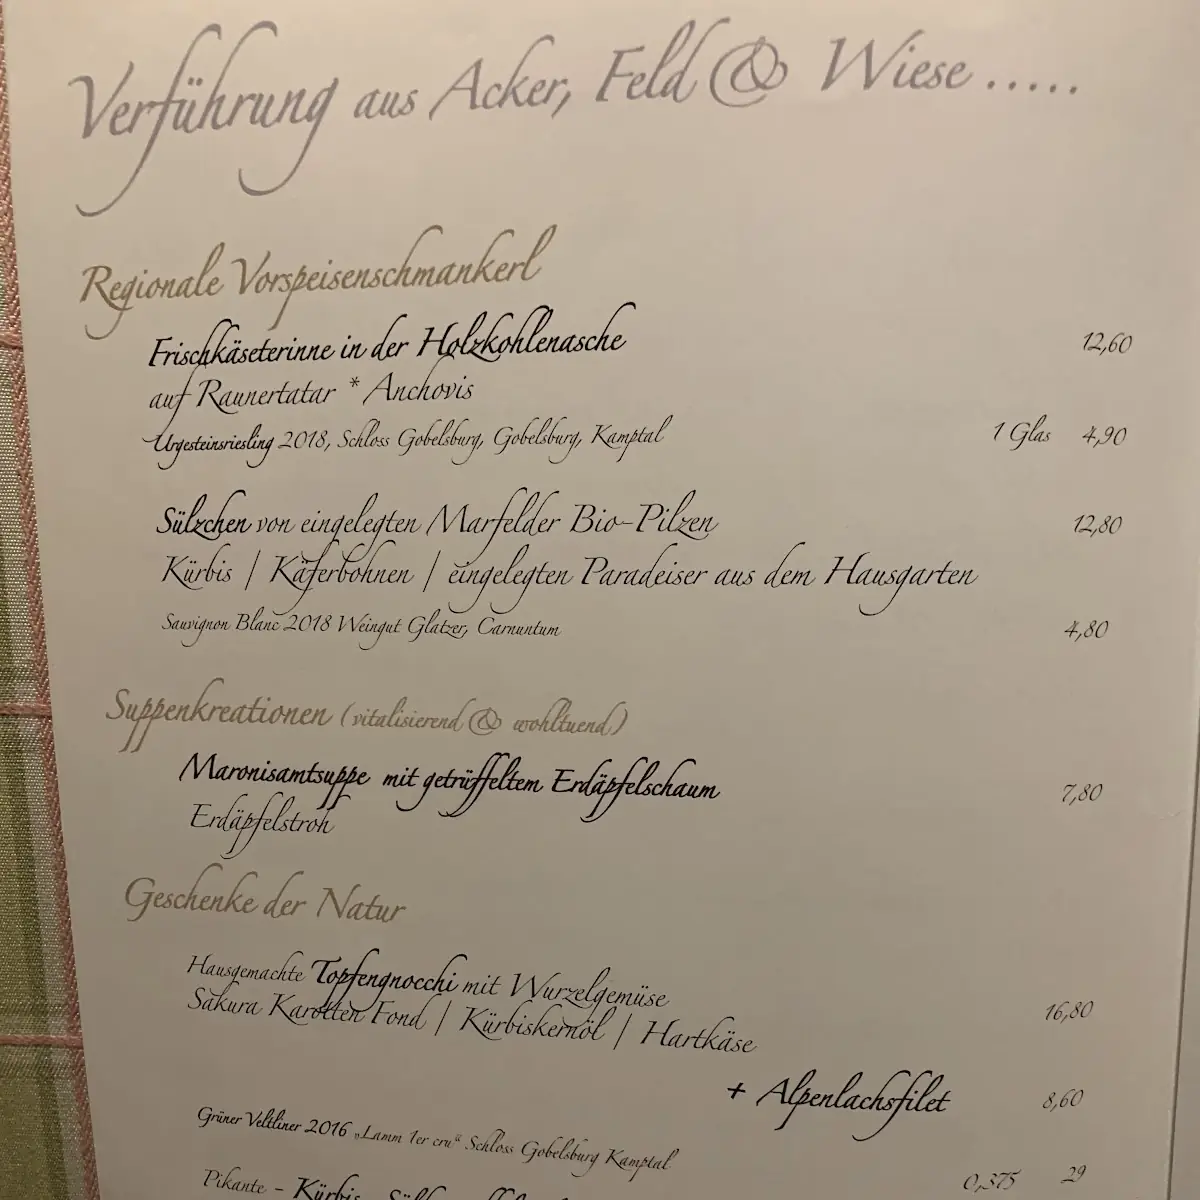 Verführung aus Acker, Feld & Wiese .....
Regionale Vorspeisenschmankerl
Frischkäseterrinne in der Holzkohlenasche 12,60
auf Raunertatar * Anchovis
Urgesteinsriesling 2018, Schloss Gobelsburg, Gobelsburg, Kamptal 1 Glas 4,90
Sülzchen von eingelegten Marfelder Bio-Pilzen 12,80
Kürbis | Käferbohnen | eingelegten Paradeiser aus dem Hausgarten
Sauvignon Blanc 2018 Weingut Glatzer, Carnuntum 4,80
Suppenkreationen (vitalisierend & wohltuend)
Maronisamtsuppe mit getrüffeltem Erdäpfelschaum 7,80
Erdäpfelstroh
Geschenke der Natur
Hausgemachte Topfengnocchi mit Wurzelgemüse 16,80
Sakura Karotten Fond | Kürbiskernöl | Hartkäse
+ Alpenlachsfilet 8,60
Grüner Veltliner 2016 „Lamm 1er cru“ Schloss Gobelsburg Kamptal 0,375 29
Pikante - Kürbis